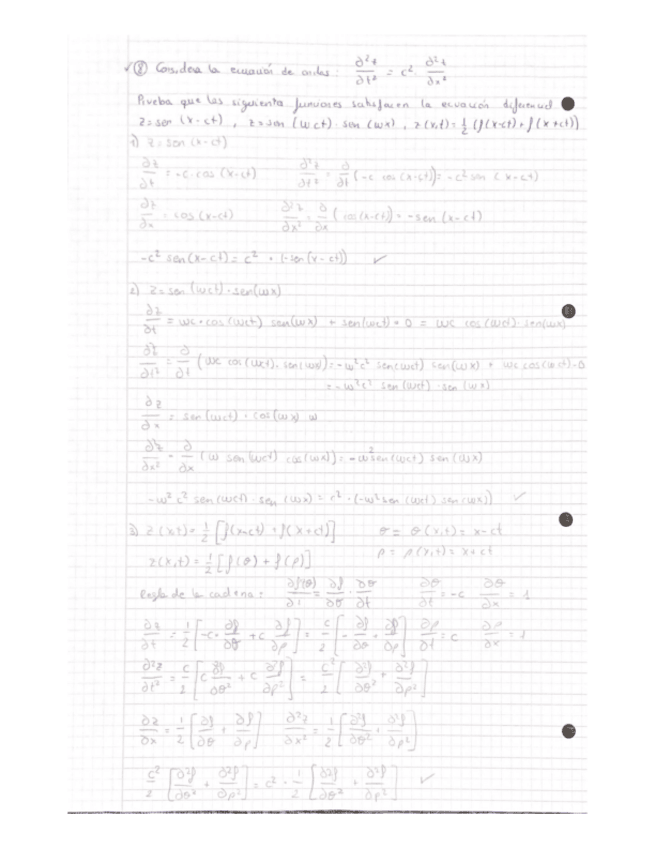 ✓⑧ Considera la ecuación de ondas: ∂²z/∂t² = c² · ∂²z/∂x²
Prueba que las siguientes funciones satisfacen la ecuación diferencial
z = sen (x-ct) , z = sen (wct) · sen (wx) , z(x,t) = 1/2 (f(x-ct) + f(x+ct))
1) z = sen (x-ct)
∂z/∂t = -c · cos (x-ct) ∂²z/∂t² = ∂/∂t (-c cos (x-ct)) = -c² sen (x-ct)
∂z/∂x = cos (x-ct) ∂²z/∂x² = ∂/∂x (cos (x-ct)) = -sen (x-ct)
-c² sen (x-ct) = c² · (-sen (x-ct)) ✓
2) z = sen (wct) · sen (wx)
∂z/∂t = wc · cos (wct) sen (wx) + sen (wct) · 0 = wc cos (wct) · sen (wx)
∂²z/∂t² = ∂/∂t (wc cos (wct) · sen (wx)) = -w²c² sen (wct) sen (wx) + wc cos (wct) · 0
= -w²c² sen (wct) · sen (wx)
∂z/∂x = sen (wct) · cos (wx) w
∂²z/∂x² = ∂/∂x (w sen (wct) cos (wx)) = -w² sen (wct) sen (wx)
-w²c² sen (wct) · sen (wx) = c² · (-w² sen (wct) sen (wx)) ✓
3) z(x,t) = 1/2 [f(x-ct) + f(x+ct)] θ = θ(x,t) = x-ct
z(x,t) = 1/2 [f(θ) + f(ρ)] ρ = ρ(x,t) = x+ct
Regla de la cadena: ∂f(θ)/∂t = ∂f/∂θ · ∂θ/∂t ∂θ/∂t = -c ∂θ/∂x = 1
∂z/∂t = 1/2 [-c · ∂f/∂θ + c ∂f/∂ρ] = c/2 [-∂f/∂θ + ∂f/∂ρ] ∂ρ/∂t = c ∂ρ/∂x = 1
∂²z/∂t² = c/2 [c ∂²f/∂θ² + c ∂²f/∂ρ²] = c²/2 [∂²f/∂θ² + ∂²f/∂ρ²]
∂z/∂x = 1/2 [∂f/∂θ + ∂f/∂ρ] ∂²z/∂x² = 1/2 [∂²f/∂θ² + ∂²f/∂ρ²]
c²/2 [∂²f/∂θ² + ∂²f/∂ρ²] = c² · 1/2 [∂²f/∂θ² + ∂²f/∂ρ²] ✓